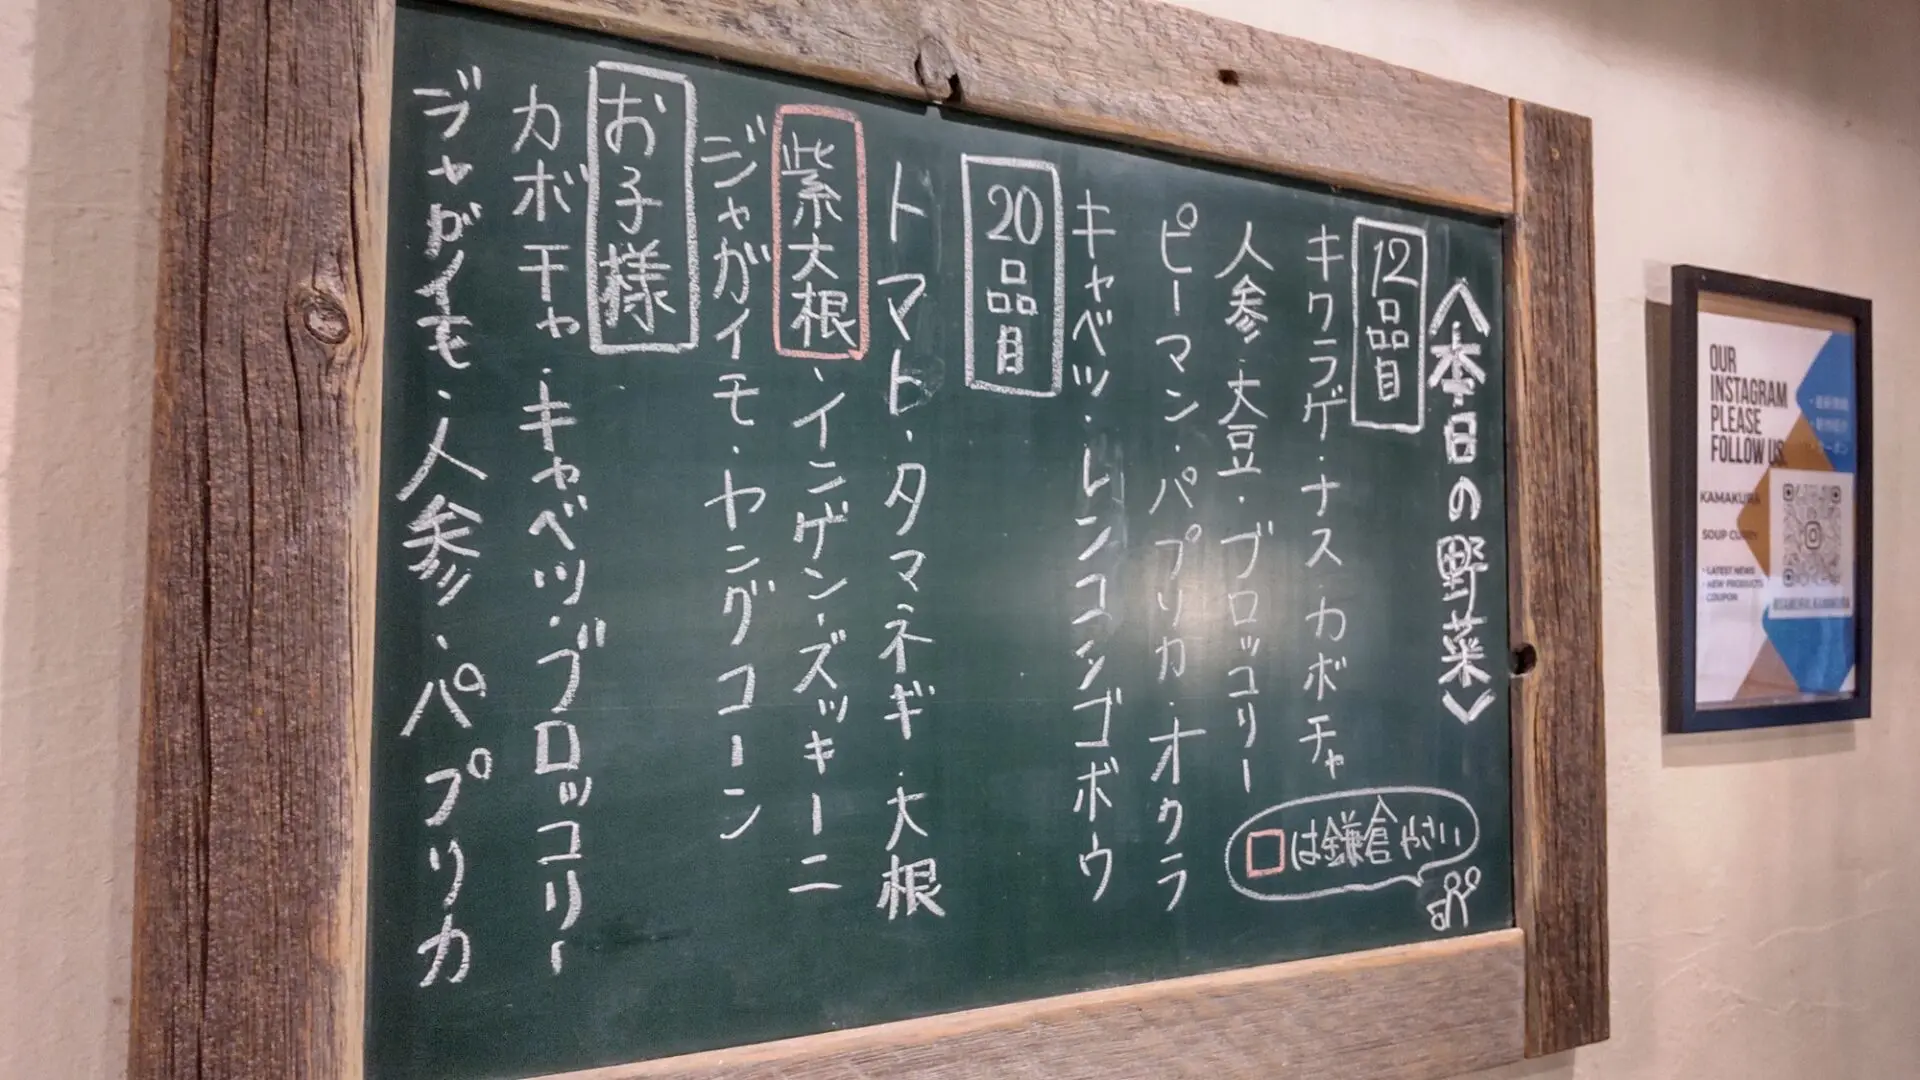 〈本日の野菜〉
12品目
キクラゲ・ナス・カボチャ
人参・大豆・ブロッコリー
ピーマン・パプリカ・オクラ
キャベツ・レンコン・ゴボウ
20品目
トマト・タマネギ・大根
紫大根・インゲン・ズッキーニ
ジャガイモ・ヤングコーン
お子様
カボチャ・キャベツ・ブロッコリー
ジャガイモ・人参・パプリカ
□は鎌倉やさい
OUR
INSTAGRAM
PLEASE
FOLLOW US
KAMAKURA
SOUP CURRY
・LATEST NEWS
・NEW PRODUCTS
COUPON